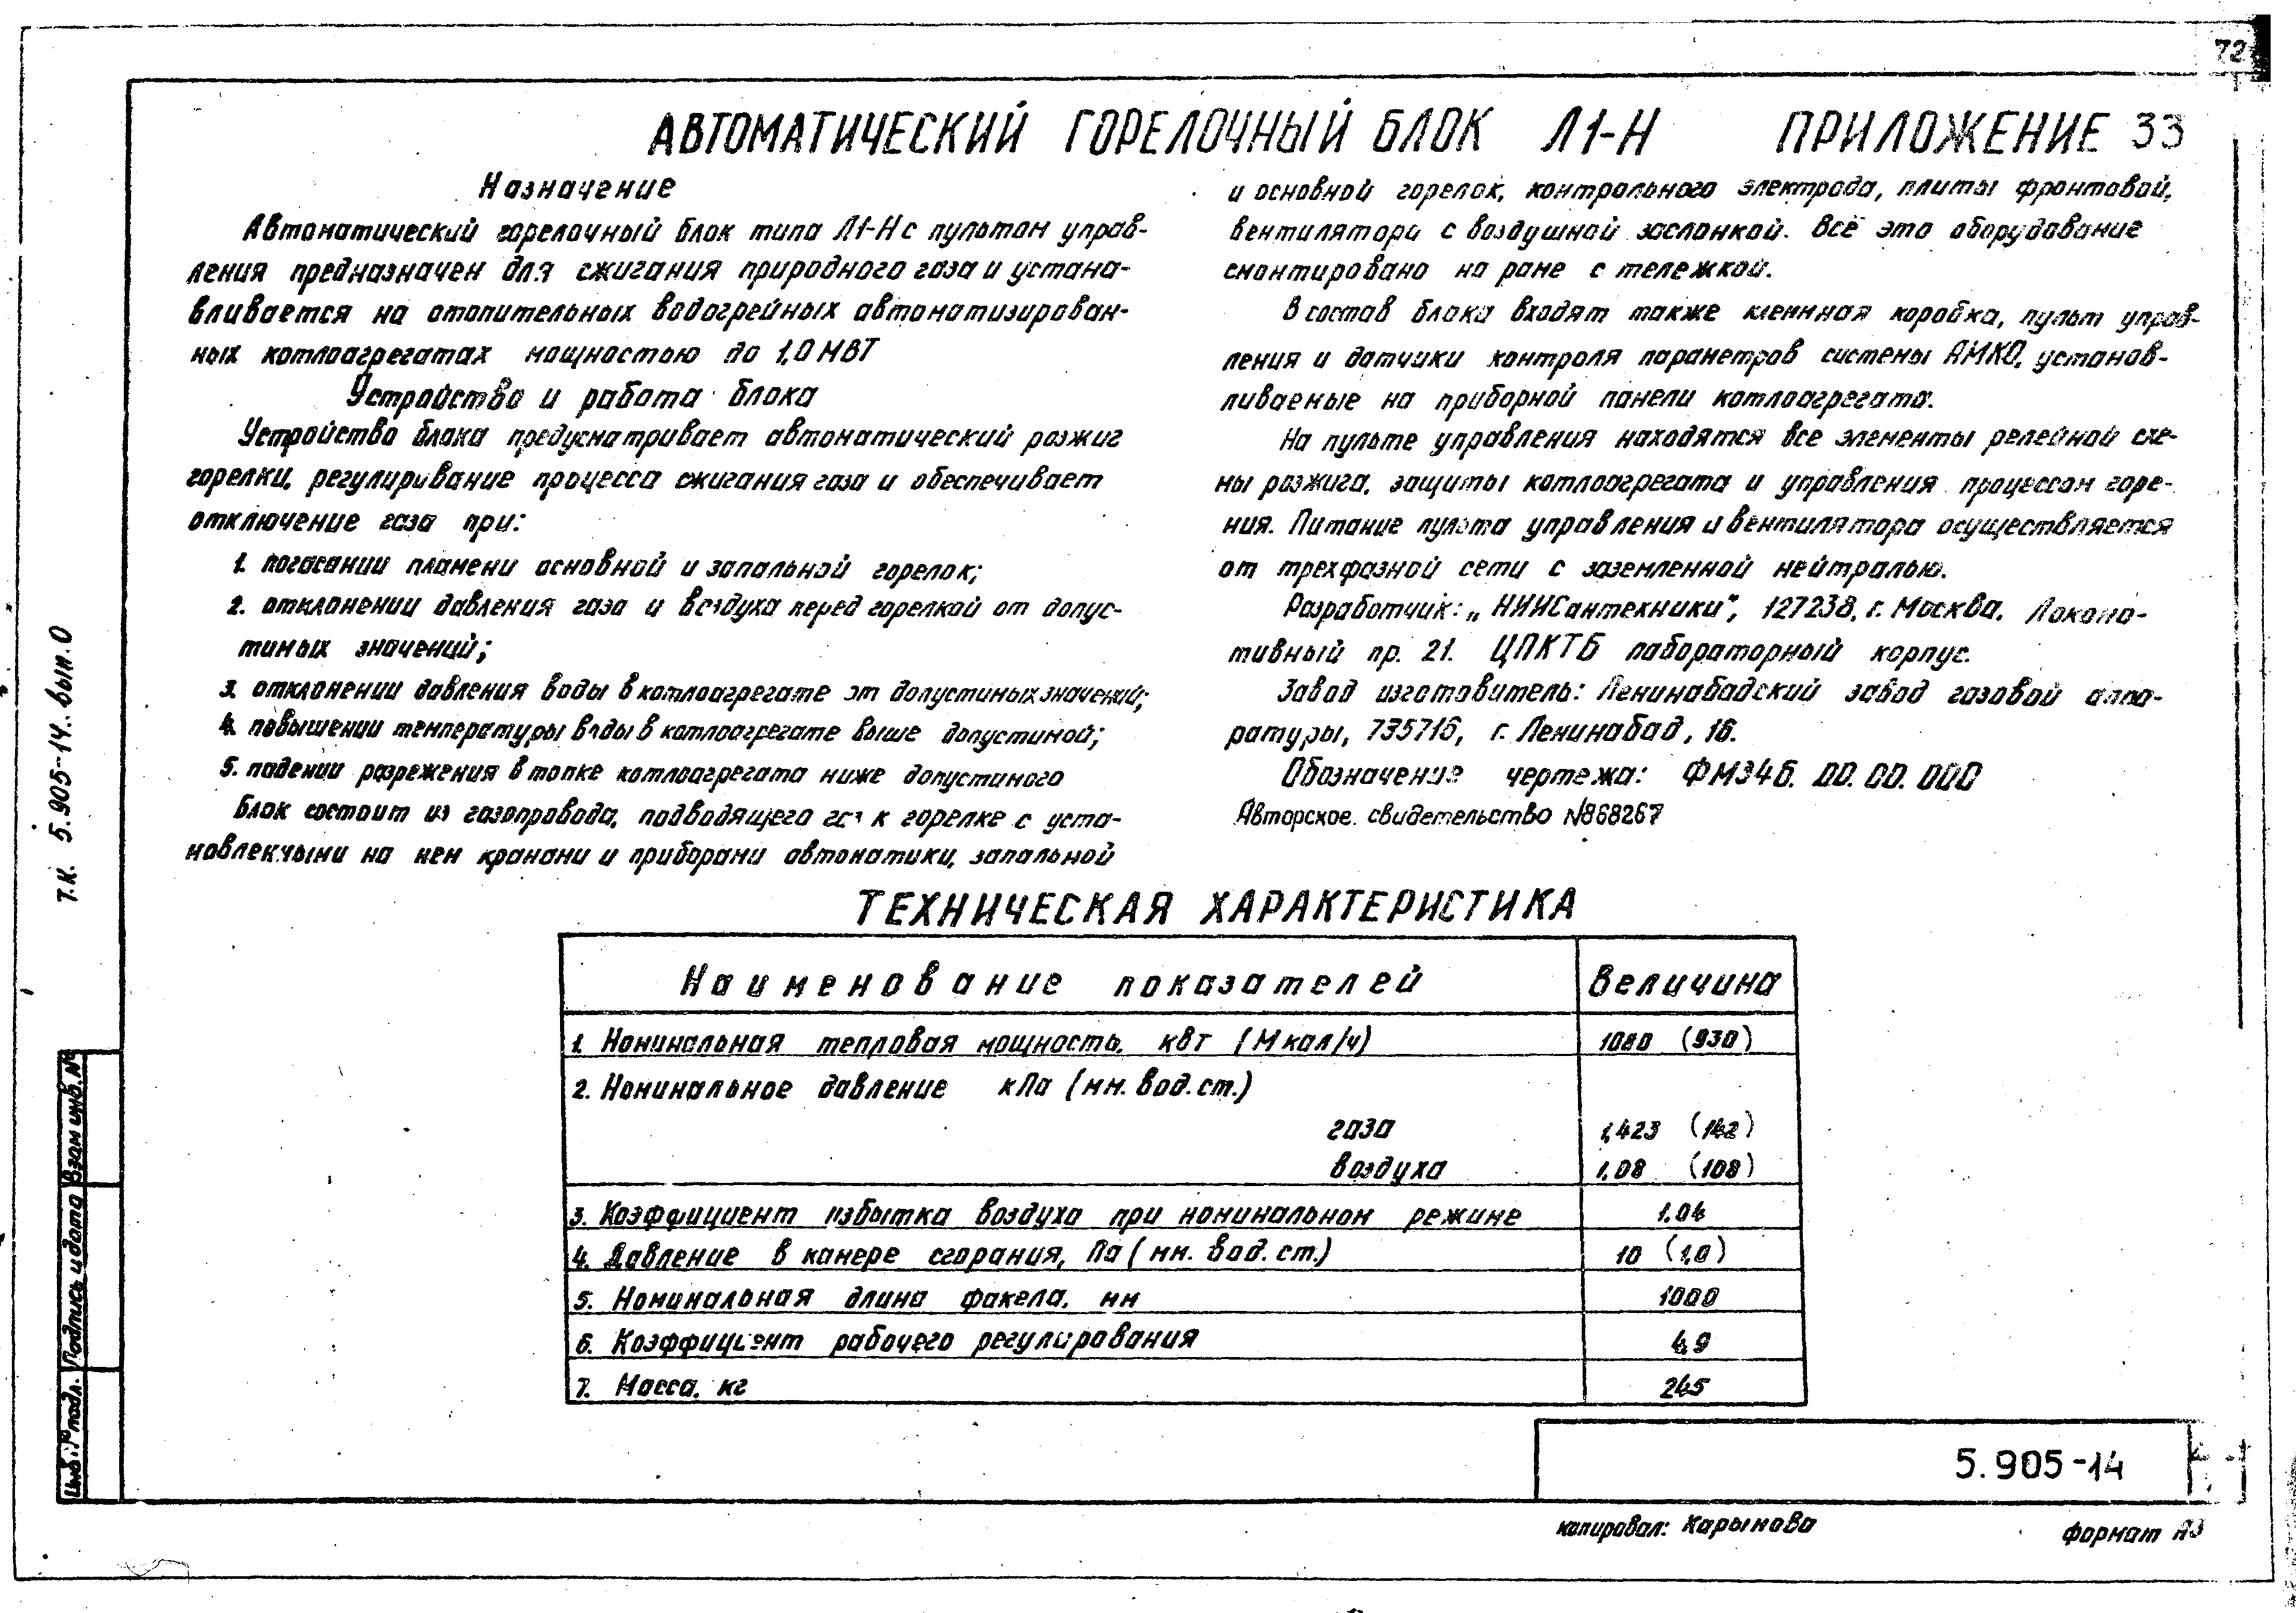 72
АВТОМАТИЧЕСКИЙ ГОРЕЛОЧНЫЙ БЛОК Л1-Н ПРИЛОЖЕНИЕ 33
Назначение
Автоматический горелочный блок типа Л1-Н с пультом управ-
ления предназначен для сжигания природного газа и устана-
вливается на отопительных водогрейных автоматизирован-
ных котлоагрегатах мощностью до 1,0 МВТ
Устройство и работа блока
Устройство блока предусматривает автоматический розжиг
горелки, регулирование процесса сжигания газа и обеспечивает
отключение газа при:
1. погасании пламени основной и запальной горелок;
2. отклонении давления газа и воздуха перед горелкой от допус-
тимых значений;
3. отклонении давления воды в котлоагрегате от допустимых значений;
4. повышении температуры воды в котлоагрегате выше допустимой;
5. падении разрежения в топке котлоагрегата ниже допустимого
Блок состоит из газопровода, подводящего газ к горелке с уста-
новленными на нем кранами и приборами автоматики, запальной
и основной горелок, контрольного электрода, плиты фронтовой,
вентилятора с воздушной заслонкой. Всё это оборудование
смонтировано на раме с тележкой.
В состав блока входят также клеммная коробка, пульт управ-
ления и датчики контроля параметров системы АМКО, установ-
ливаемые на приборной панели котлоагрегата.
На пульте управления находятся все элементы релейной схе-
мы розжига, защиты котлоагрегата и управления процессом горе-
ния. Питание пульта управления и вентилятора осуществляется
от трехфазной сети с заземленной нейтралью.
Разработчик: „НИИСантехники", 127238, г. Москва, Локомо-
тивный пр. 21. ЦПКТБ лабораторный корпус.
Завод изготовитель: Ленинабадский завод газовой аппа-
ратуры, 735716, г. Ленинабад, 16.
Обозначение чертежа: ФМ346. 00. 00. 000
Авторское свидетельство №868267
ТЕХНИЧЕСКАЯ ХАРАКТЕРИСТИКА
Наименование показателей Величина
1. Номинальная тепловая мощность, квт (Мкал/ч) 1080 (930)
2. Номинальное давление кПа (мм. вод. ст.)
газа 1,423 (142)
воздуха 1,08 (108)
3. Коэффициент избытка воздуха при номинальном режиме 1.04
4. Давление в камере сгорания, Па (мм. вод. ст.) 10 (1,0)
5. Номинальная длина факела, мм 1000
6. Коэффициент рабочего регулирования 4,9
7. Масса, кг 245
5.905-14
копировал: Карынова
формат А3
Т.К. 5.905-14. вып. 0
Взам инв. №
Подпись и дата
Инв. № подл.